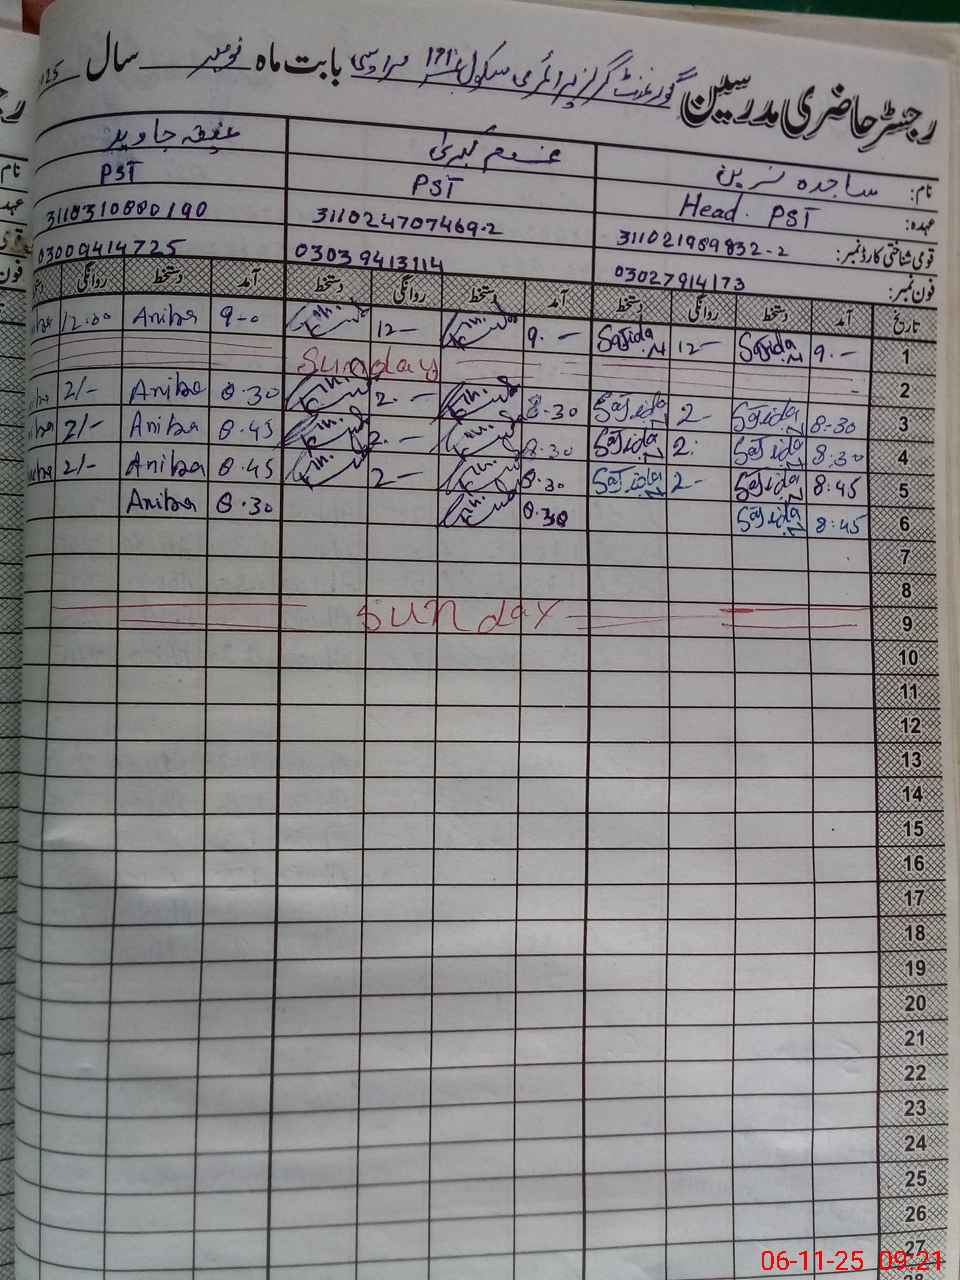 رجسٹر حاضری مدرسین گورنمنٹ گرلز پرائمری سکول 171 بابت ماہ نومبر سال 25
نام: ساجدہ نسرین کبریٰ جاوید
عہدہ: Head. PST PST PST
قومی شناختی کارڈ نمبر: 311021989832-2 311024707469-2 3110310880190
فون نمبر: 03027914173 03039413114 03009414725
تاریخ آمد دستخط روانگی دستخط آمد دستخط روانگی دستخط آمد دستخط روانگی
1 9.- Sajida.N 12- Sajida.N 9.- 12- 9-0 Aniba 12.00
2 Sunday
3 8-30 Sajida.N 2- Sajida.N 8.30 2.- 8.30 Aniba 2/-
4 8.30 Sajida.N 2. Sajida.N 8.30 2.- 8.45 Aniba 2/-
5 8:45 Sajida.N 2- Sajida.N 8.30 2- 8.45 Aniba 2/-
6 8:45 Sajida.N 8.30 8.30 Aniba
7
8
9 Sunday
10
11
12
13
14
15
16
17
18
19
20
21
22
23
24
25
26
27
06-11-25 09:21